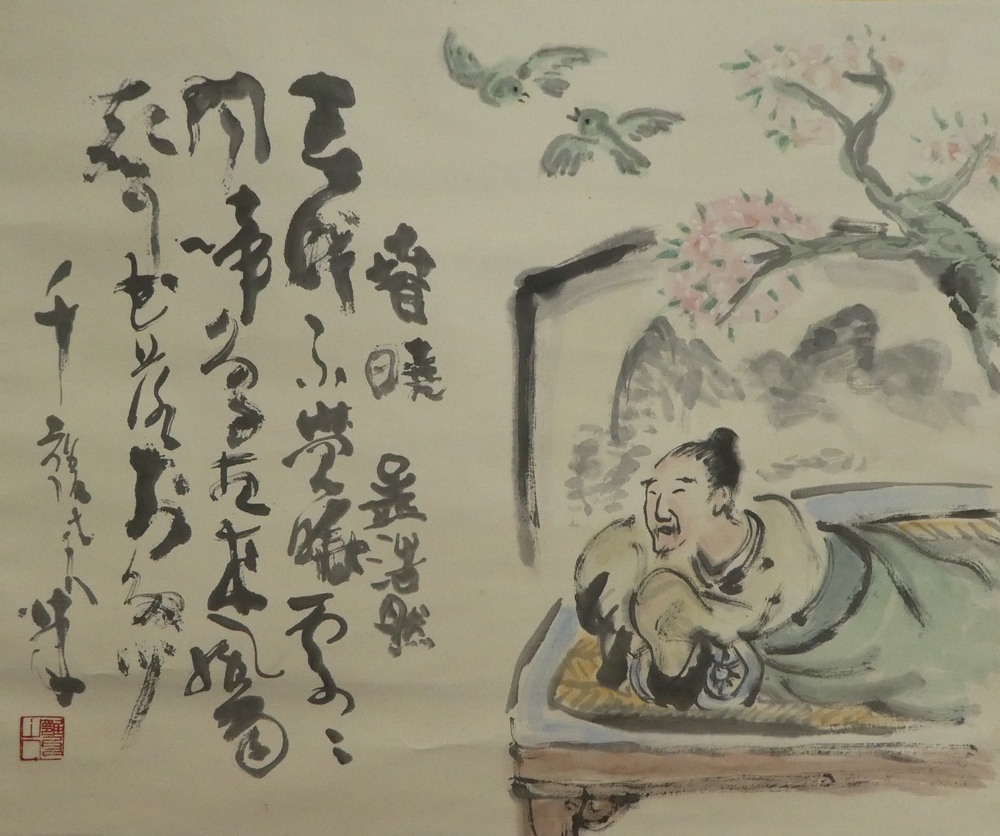 春曉 孟浩然
春眠不覺曉處々
聞啼鳥夜来風雨
聲花落知多少
千